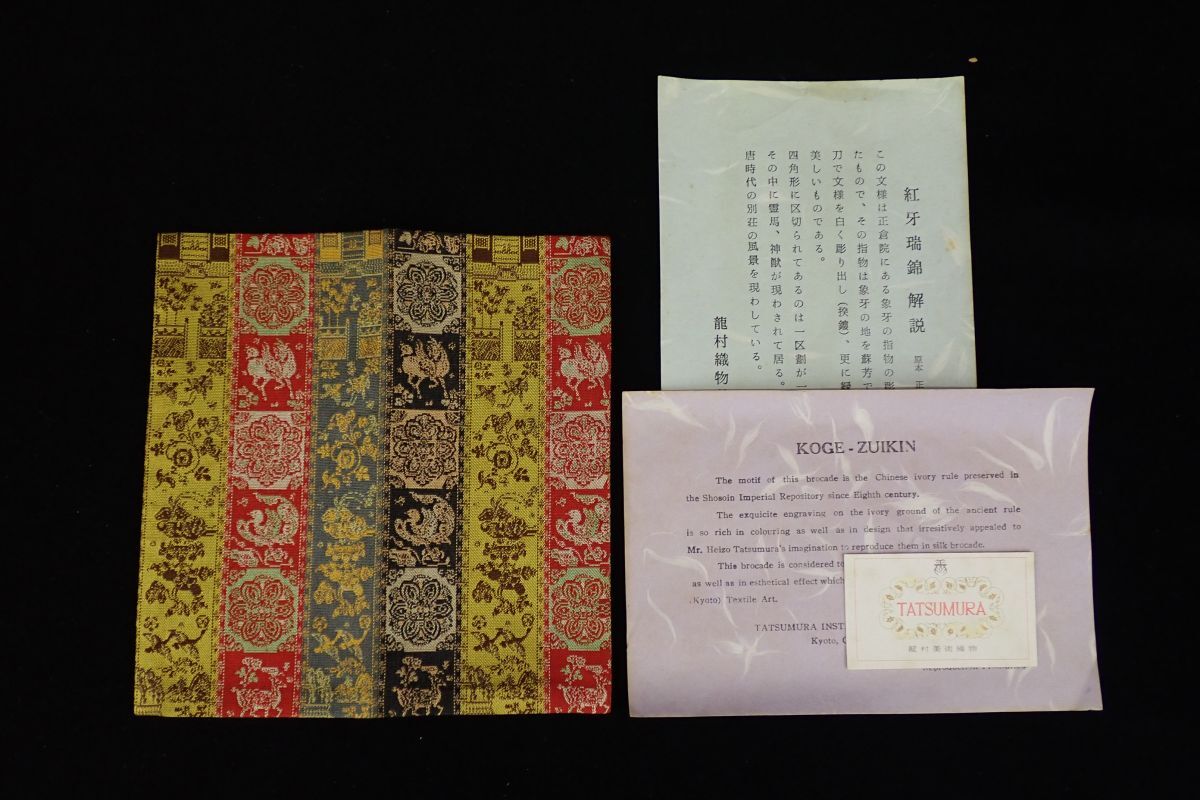 紅牙瑞錦 解説 原本 正
この文様は正倉院にある象牙の指物の彫
たもので、その指物は象牙の地を蘇芳で
刀で文様を白く彫り出し(撥鏤)、更に緑
美しいものである。
四角形に区切られてあるのは一区劃が一
その中に霊馬、神獣が現わされて居る。
唐時代の別荘の風景を現わしている。
龍村織物
KOGE - ZUIKIN
The motif of this brocade is the Chinese ivory rule preserved in
the Shosoin Imperial Repository since Eighth century.
The exquicite engraving on the ivory ground of the ancient rule
is so rich in colouring as well as in design that irresitively appealed to
Mr. Heizo Tatsumura's imagination to reproduce them in silk brocade.
This brocade is considered to
as well as in esthetical effect which
.Kyoto) Textile Art.
TATSUMURA INST
Kyoto,
TATSUMURA
龍村美術織物